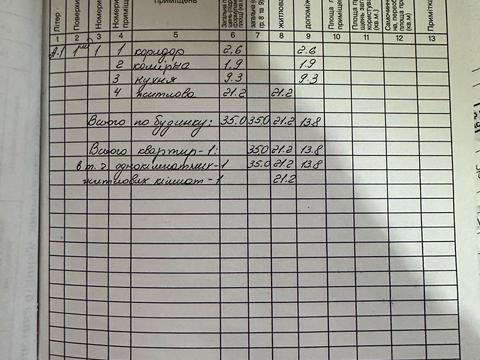 Літер
Поверх
Номери
Номери приміщ
приміщень
житлової
допоміж
Примітка
1 2 3 4 5 6 7 8 9 10 11 12 13
А-1 1 1 1 коридор 2.6 2.6
2 комірна 1.9 1.9
3 кухня 9.3 9.3
4 житлова 21.2 21.2
Всього по будинку: 35.0 35.0 21.2 13.8
Всього квартир-1: 35.0 21.2 13.8
в т.ч. однокімнатних-1 35.0 21.2 13.8
житлових кімнат-1 21.2